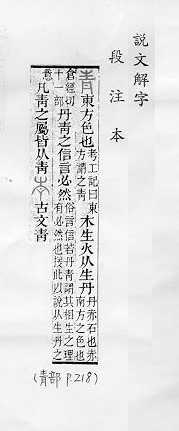 說文解字
段注本
青東方色也考工記曰東方謂之青木生火从生丹丹赤石也赤南方之色也
倉經切十一部丹青之信言必然俗言信若丹青謂其相生之理有必然也援此以說从生丹之
意凡青之屬皆从青 古文青
(青部 P.218)